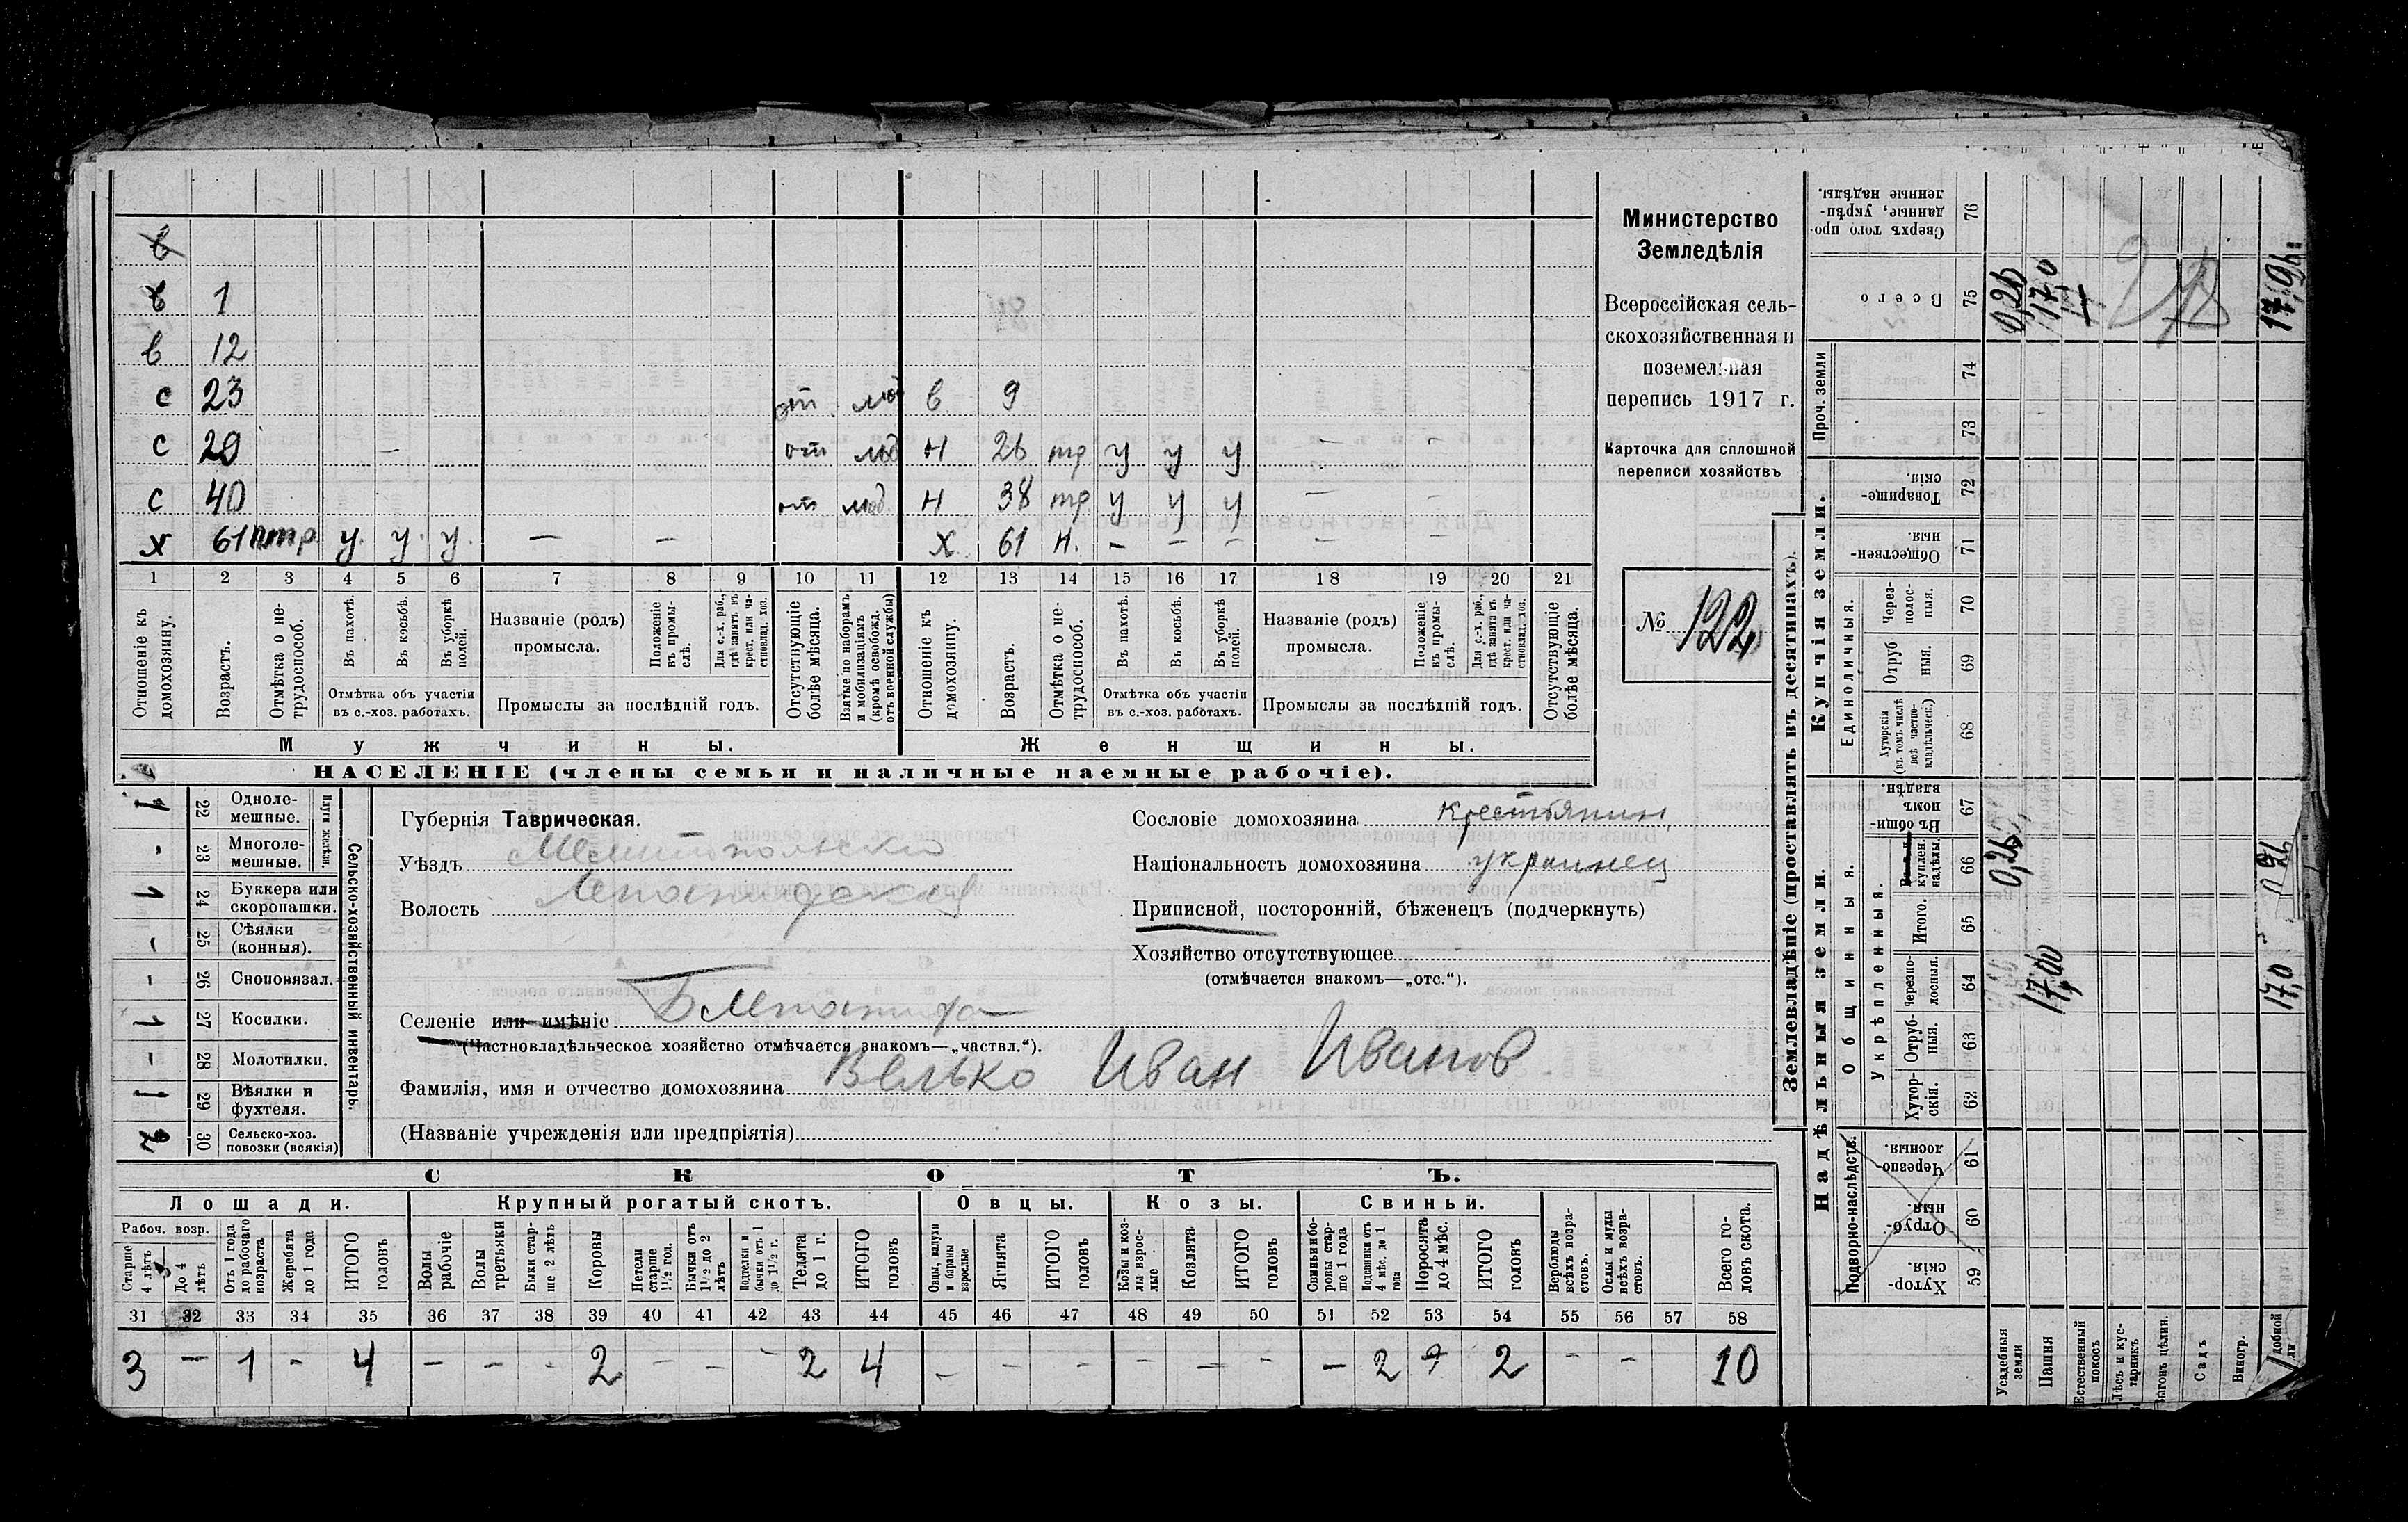 в
в 1
в 12
с 23 от. моб в 9
с 29 - от моб н 26 тр. у у у - -
с 40 от моб. н 38 тр. у у у - -
х 61 п тр. у. у. у. - - х 61 н. - - - - -
1 2 3 4 5 6 7 8 9 10 11 12 13 14 15 16 17 18 19 20 21
Отношеніе къ домохозяину.
Возрастъ.
Отмѣтка о не-трудоспособ.
Въ пахотѣ.
Въ косьбѣ.
Въ уборкѣ полей.
Отмѣтка объ участіи
въ с.-хоз. работахъ.
Названіе (родъ)
промысла.
Положеніе въ промы-слѣ.
Для с.-х. раб., гдѣ занятъ въ крест. или ча-стновлад. хоз.
Промыслы за послѣдній годъ.
Отсутствующіе болѣе мѣсяца.
Взятые по наборамъ и мобилизаціямъ (кромѣ освобожд. отъ военной службы)
Отношеніе къ домохозяину.
Возрастъ.
Отмѣтка о не-трудоспособ.
Въ пахотѣ.
Въ косьбѣ.
Въ уборкѣ полей.
Отмѣтка объ участіи
въ с.-хоз. работахъ.
Названіе (родъ)
промысла.
Положеніе въ промы-слѣ.
Для с.-х. раб., гдѣ занята въ крест. или ча-стновлад. хоз.
Промыслы за послѣдній годъ.
Отсутствующіе болѣе мѣсяца.
Мужчины.
Женщины.
НАСЕЛЕНІЕ (члены семьи и наличные наемные рабочіе).
Министерство
Земледѣлія
Всероссійская сель-
скохозяйственная и
поземельная
перепись 1917 г.
Карточка для сплошной
переписи хозяйствъ
№ 122
Сельско-хозяйственный инвентарь.
Плуги желѣзн.
1 22 Одноле-мешные.
- 23 Многоле-мешные.
1 24 Буккера или скоропашки.
- 25 Сѣялки (конныя).
- 26 Сноповязал.
1 27 Косилки.
- 28 Молотилки.
1 29 Вѣялки и фухтеля.
2 30 Сельско-хоз. повозки (всякія)
Губернія Таврическая.
Уѣздъ Мелитопольскій
Волость
Селеніе или имѣніе
(Частновладѣльческое хозяйство отмѣчается знакомъ—„частвл.“).
Фамилія, имя и отчество домохозяина Велько Иван Иванов
(Названіе учрежденія или предпріятія)
Сословіе домохозяина крестьянин.
Національность домохозяина украинец
Приписной, посторонній, бѣженецъ (подчеркнуть)
Хозяйство отсутствующее
(отмѣчается знакомъ—„отс.“).
СКОТЪ.
Лошади. Крупный рогатый скотъ. Овцы. Козы. Свиньи.
Рабоч. возр.
Старше 4 лѣтъ
До 4 лѣтъ
Отъ 1 года до рабочаго возраста
Жеребята до 1 года
ИТОГО головъ
Волы рабочіе
Волы третьяки
Быки стар-ше 2 лѣтъ
Коровы
Нетели старше 1½ год.
Бычки отъ 1½ до 2 лѣтъ
Подтелки и бычки отъ 1 до 1½ г.
Телята до 1 г.
ИТОГО головъ
Овцы, валухи и бараны взрослые
Ягнята
ИТОГО головъ
Козы и коз-лы взрос-лые
Козлята
ИТОГО головъ
Свиньи и бо-ровы стар-ше 1 года
Подсвинки отъ 4 мѣс. до 1 года
Поросята до 4 мѣс.
ИТОГО головъ
Верблюды всѣхъ возра-стовъ.
Ослы и мулы всѣхъ возра-стовъ.
Всего го-ловъ скота.
31 32 33 34 35 36 37 38 39 40 41 42 43 44 45 46 47 48 49 50 51 52 53 54 55 56 57 58
3 - 1 - 4 - - - 2 - - - 2 4 - - - - - - - 2 2 - - 10
Землевладѣніе (проставлять въ десятинахъ).
Надѣльныя земли.
Купчія земли.
Проч. земли
Подворно-наслѣдств.
Общинныя.
Укрѣпленныя.
Единоличныя.
Сверхъ того про-данные, укрѣп-ленные надѣлы. 76
Всего 75
74
73
Товарище-скія. 72
Обществен-ныя. 71
Через-полос-ныя. 70
Отруб-ныя. 69
Хуторскія (въ томъ числѣ всѣ частно-владѣльческ.) 68
Въ общин-номъ владѣн. 67
куплен. надѣлы. 66
Итого. 65
Черезпо-лосныя. 64
Отруб-ныя. 63
Хутор-скія. 62
Черезпо-лосныя. 61
Отруб-ныя. 60
Хутор-скія. 59
Усадебныя земли
Пашня
Естественный покосъ
Лѣсъ и кус-тарникъ
Выгонъ цѣлин.
Садъ
Виногр.
0,26
17,0
0,26
17,00
17,0